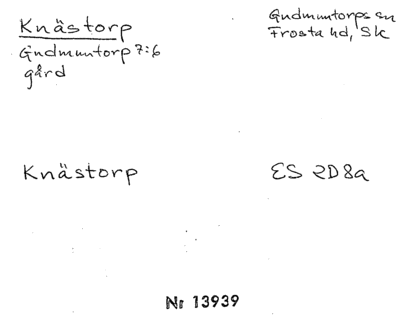 Knästorp
Gudmuntorp 7:6
gård
Gudmuntorps sn
Frosta hd, Sk
Knästorp
ES 2D8a
Nr 13939